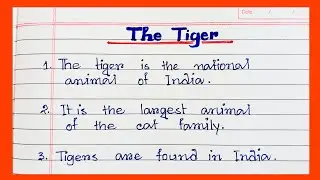 The Tiger
1. The tiger is the national
animal of India.
2. It is the largest animal
of the cat family.
3. Tigers are found in India.